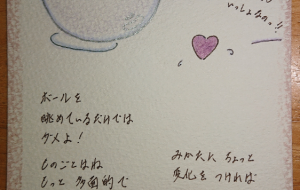 いっしょなのっ!!
ボールを
眺めているだけでは
ダメよ!
ものごとはね
もっと 多面的で
みかたに ちょっと
変化を つければ